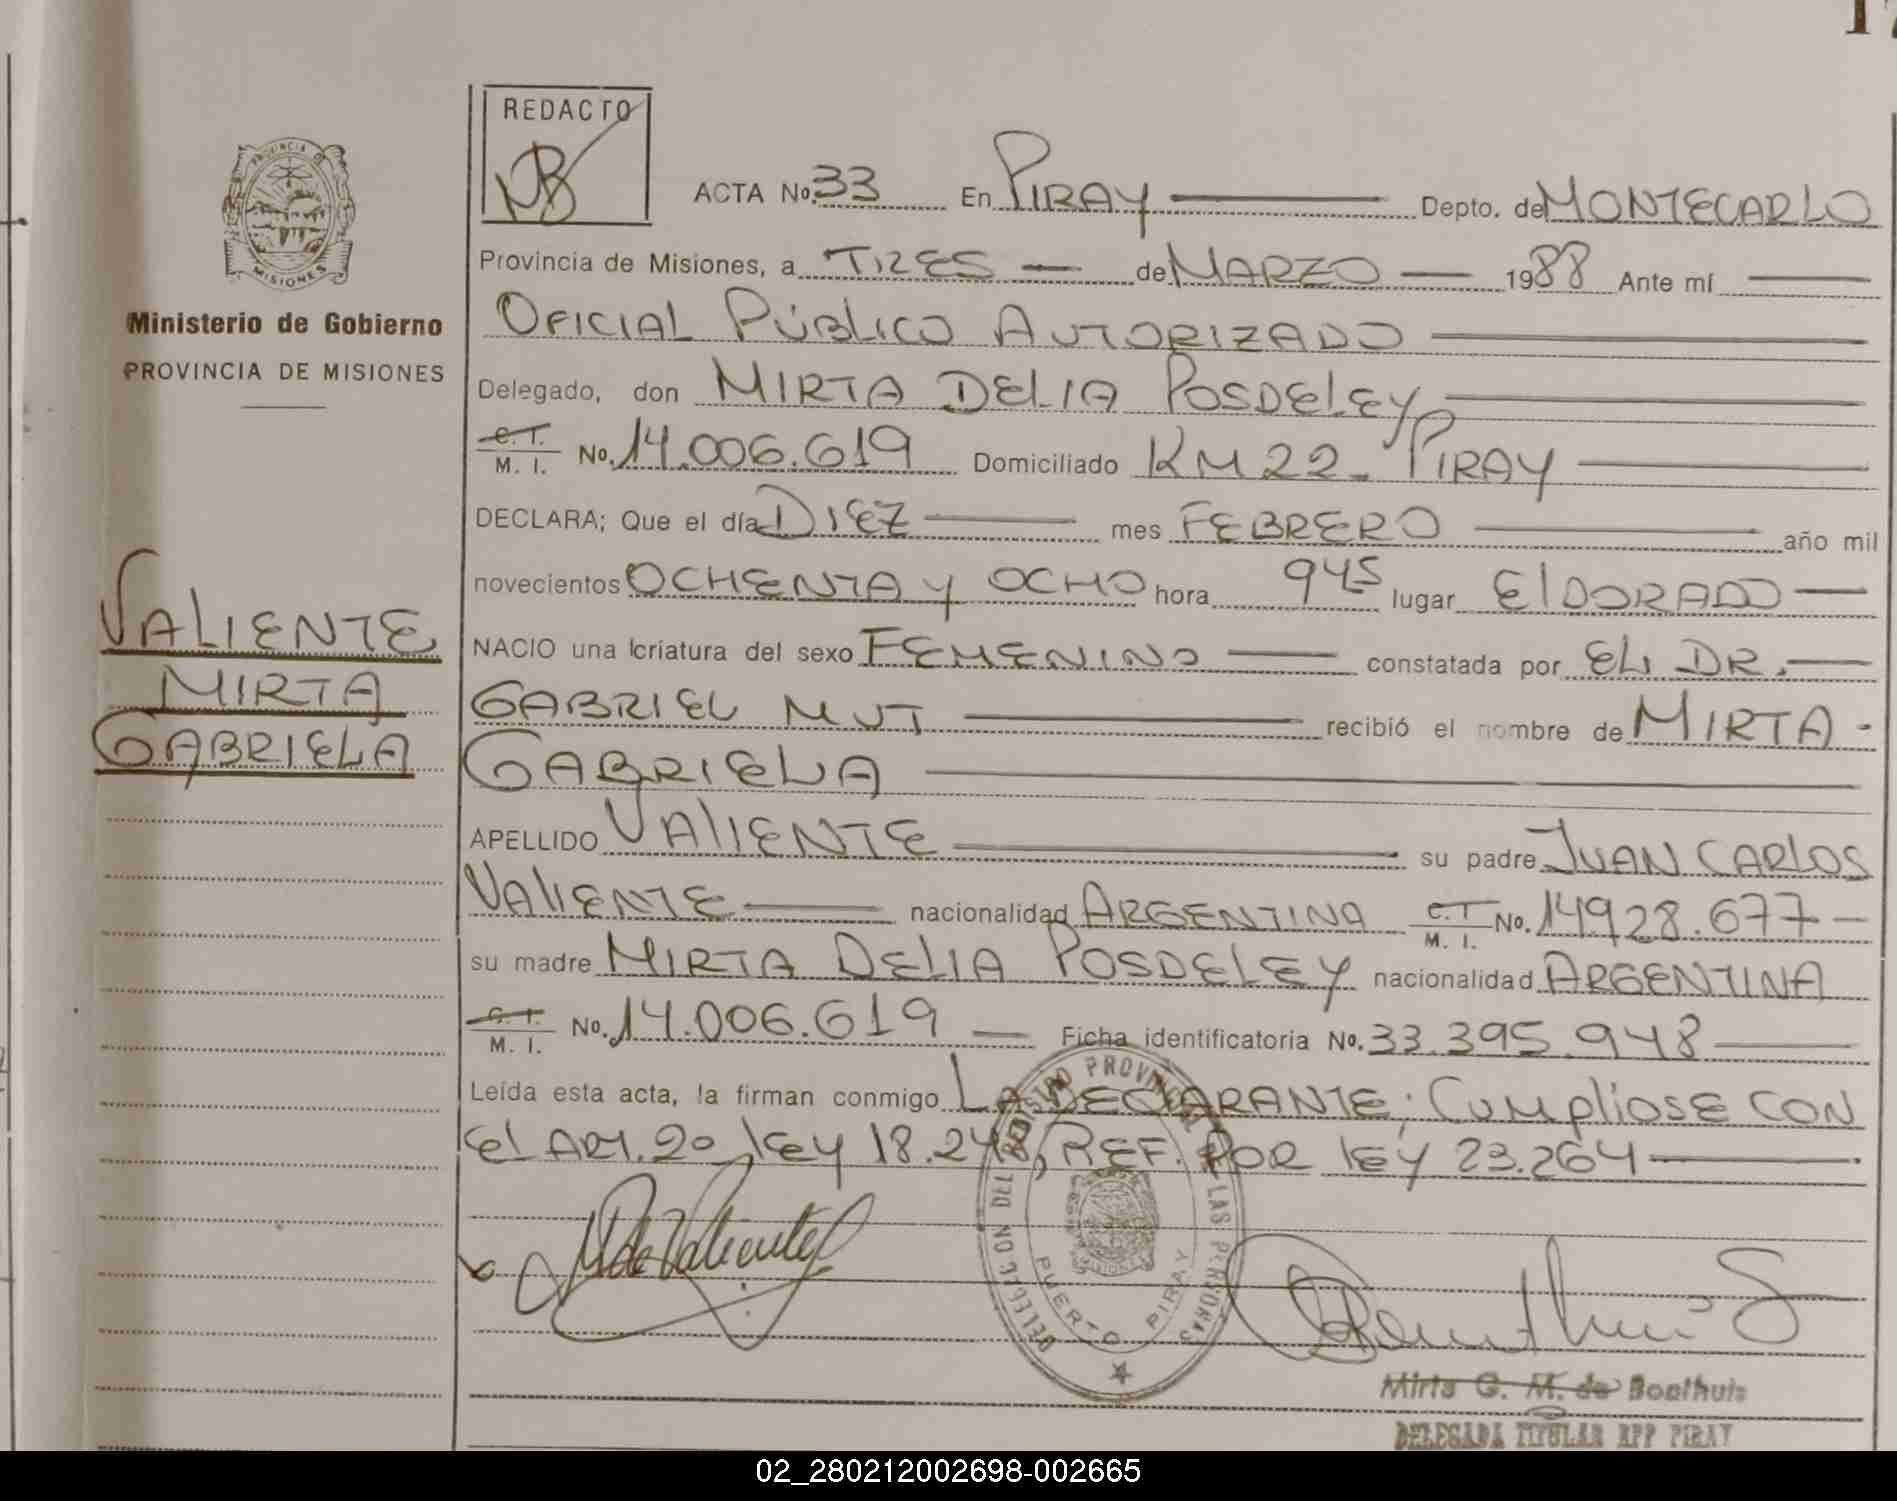 17
REDACTO
ACTA No. 33 En PIRAY Depto. de MONTECARLO
Provincia de Misiones, a TRES de MARZO 1988 Ante mí
OFICIAL PÚBLICO AUTORIZADO
Delegado, don MIRTA DELIA POSDELEY
C. T.
M. I. No. 14.006.619 Domiciliado KM 22 - PIRAY
DECLARA; Que el día DIEZ mes FEBRERO año mil
novecientos OCHENTA Y OCHO hora 945 lugar ElDORADO
NACIO una criatura del sexo FEMENINO constatada por EL DR.
GABRIEL MUT recibió el nombre de MIRTA -
GABRIELA
APELLIDO VAlIENTE su padre JUAN CARlOS
VAlIENTE nacionalidad ARGENTINA C. T. M. I. No. 14928.677
su madre MIRTA DELIA POSDELEY nacionalidad ARGENTINA
C. T.
M. I. No. 14.006.619 Ficha identificatoria No. 33.395.948
Leída esta acta, la firman conmigo LA DECLARANTE; CUMPlIOSE CON
El ART. 2o lEY 18.248, REF. POR lEY 23.264
M de Valiente
PROVINCIA DE
MISIONES
Ministerio de Gobierno
PROVINCIA DE MISIONES
VALIENTE
MIRTA
GABRIELA
DELEGACION DEL REGISTRO PROVINCIAL DE LAS PERSONAS
PUERTO PIRAY
Mirta G. M. de Boelhuis
DELEGADA TITULAR RPP PIRAY
02_280212002698-002665